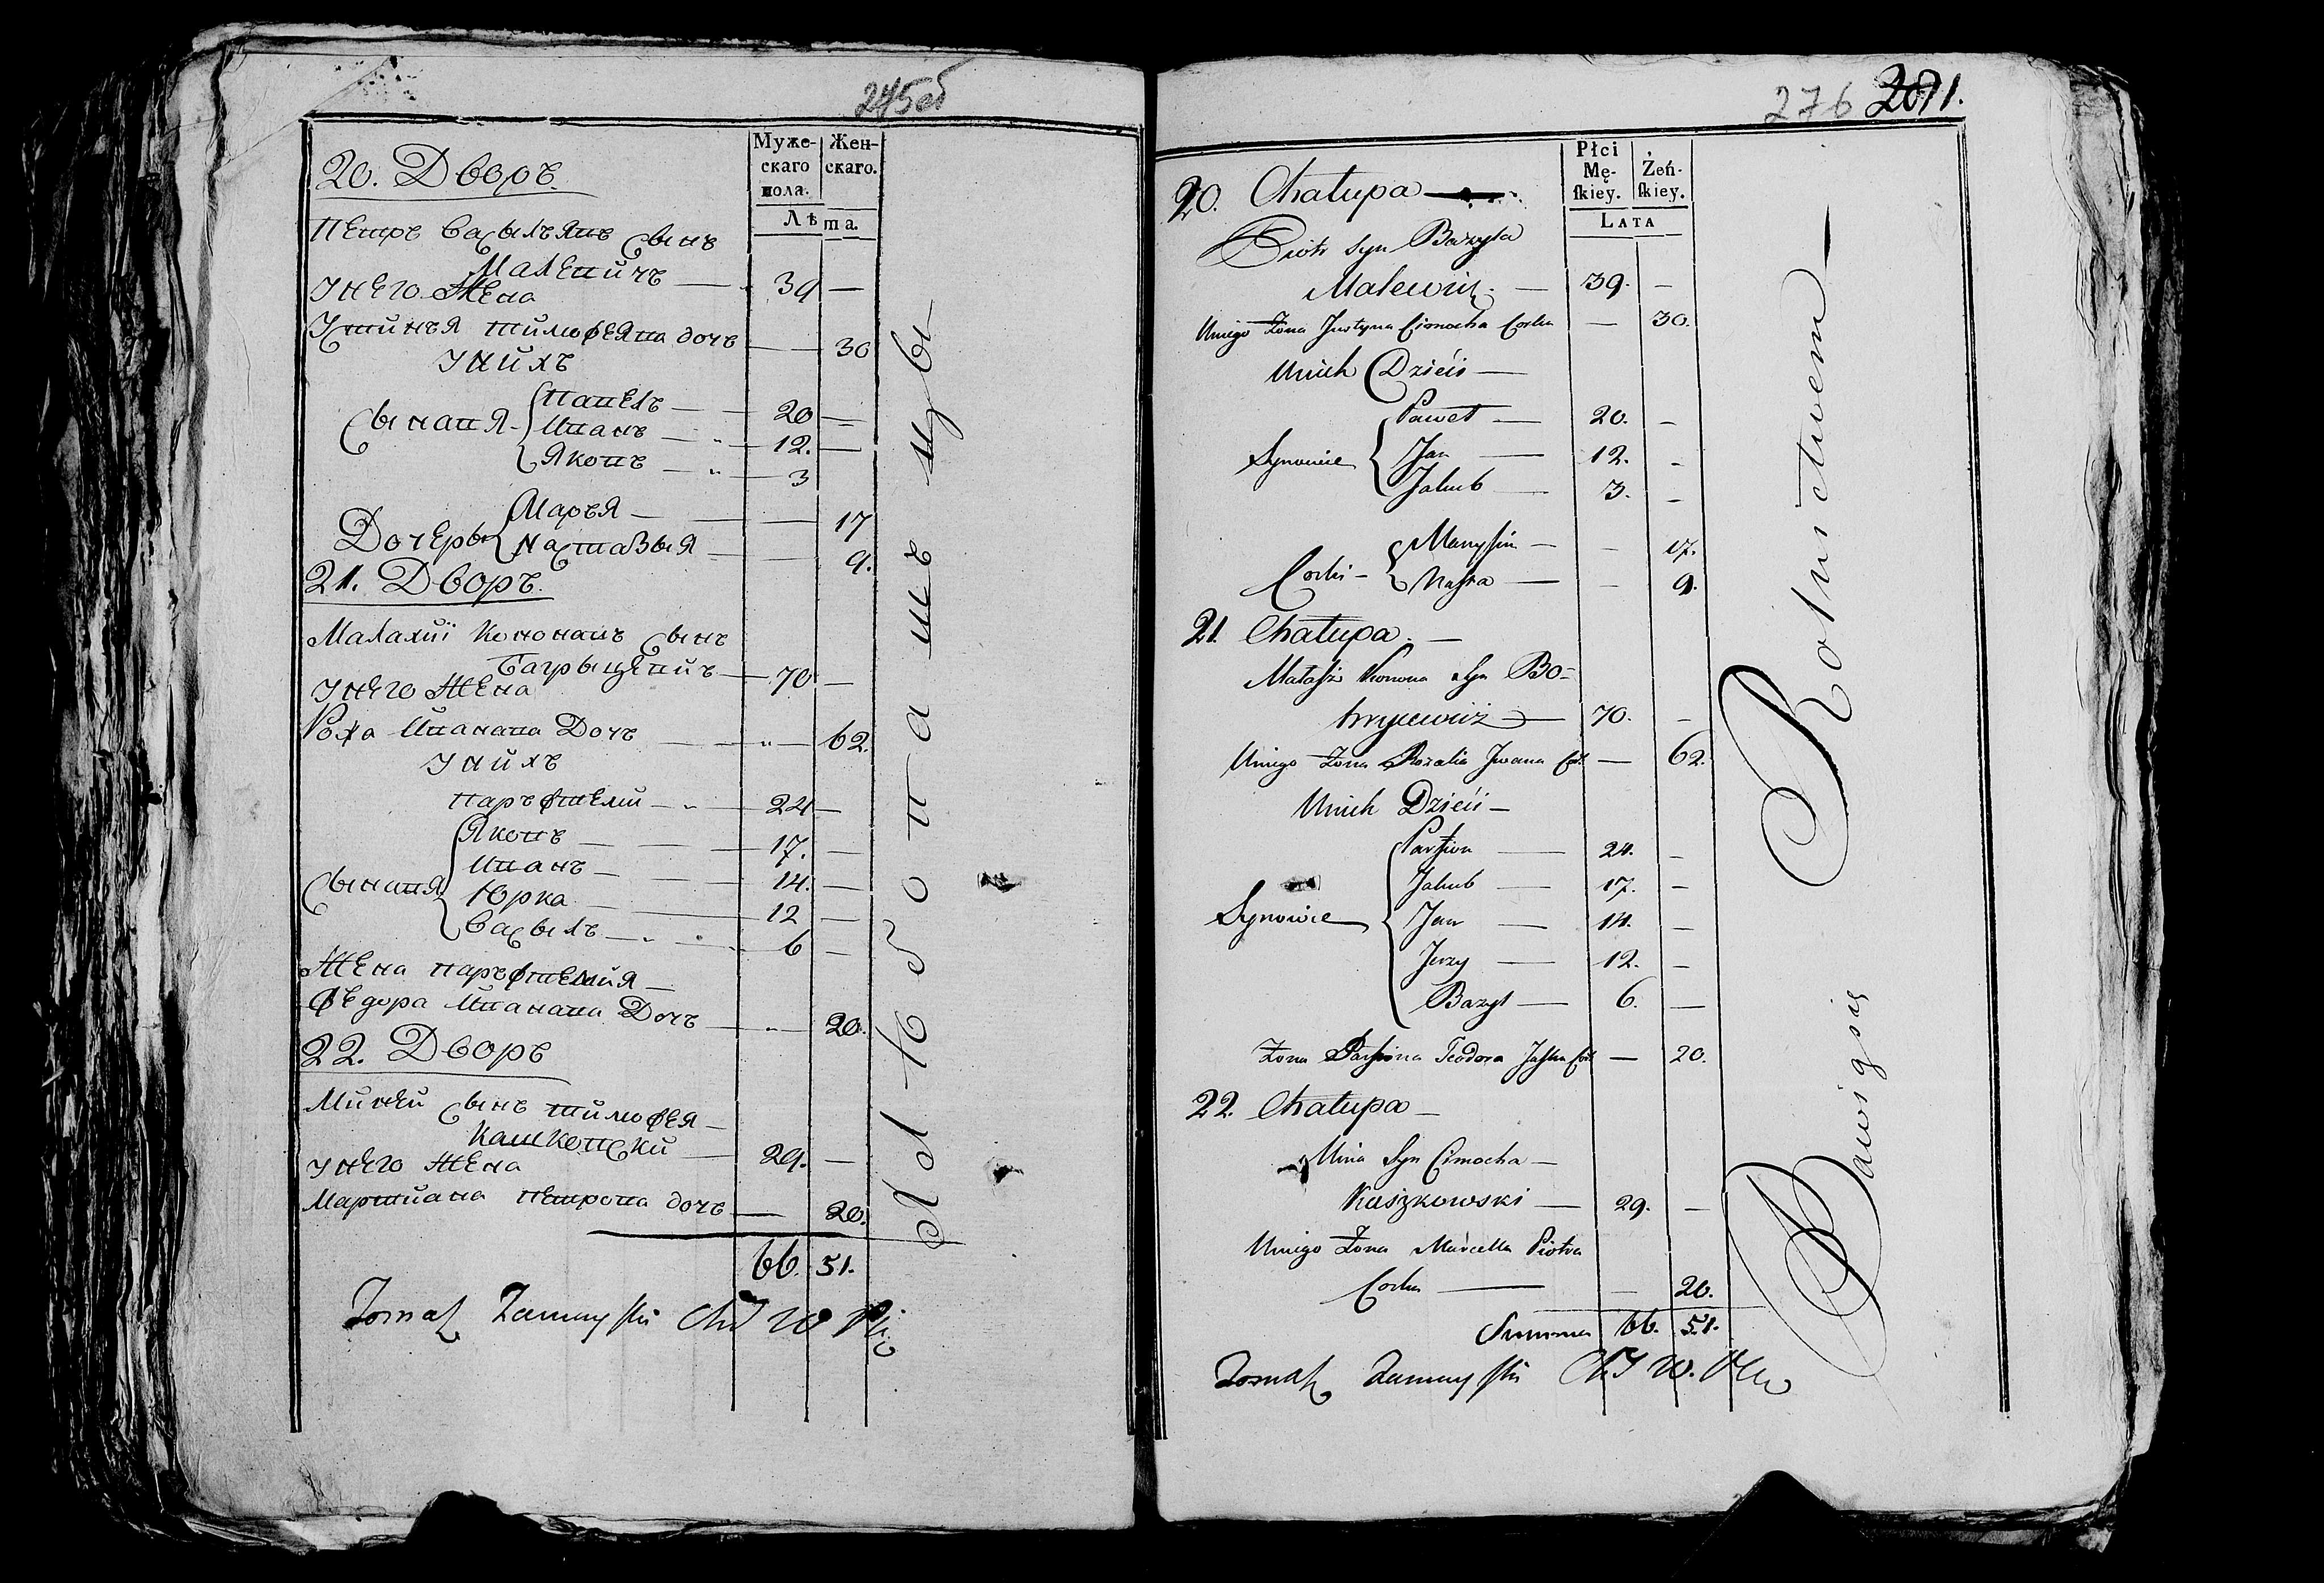 245об
Муже-
скаго
пола.
Жен-
скаго.
Лѣта.
20. Дворъ.
Петръ Васылъявъ Сынъ
Малевичъ — 39 —
У Него Жена
Устинъя Тимофеява дочъ — 30
У Нихъ
Сыновя Павелъ — 20 —
Иванъ — 12. —
Яковъ — 3
Дочеры Маръя — 17
Настазыя — 9.
21. Дворъ.
Малахиi Кононавъ Сынъ
Багрыцевичъ — 70 —
У Него Жена
Роза Иванава Дочъ — 62.
У Нихъ
Паръфтели — 24 —
Сынавя Яковъ — 17. —
Иванъ — 14. —
Юрка — 12 —
Васылъ — 6 —
Жена Паръфтелия —
Федора Иванава Дочъ — 20.
22. Дворъ
Миней Сынъ Тимофея —
Кашковски — 29. —
У Него Жена
Мартиана Петрова дочъ — 20.
66. 51.
Tomasz
276 201.
Płci
Mę-
ſkiey.
Żeń-
ſkiey.
LATA
20. Chałupa —
Piotr Syn Bazyla
Malewicz — 39. —
Uniego Żona Justyna Cimocha Corka — 30.
Unich Dzieci —
Synowie Paweł — 20. —
Jan — 12. —
Jakub — 3. —
Corki — Marysia — 17.
Nastka — 9.
21. Chałupa —
Małasz Konona Syn Bo-
hrycewicz — 70. —
Uniego Żona Rozalia Jwana Cor — 62.
Unich Dzieci —
Synowie Partion — 24. —
Jakub — 17. —
Jan — 14. —
Jerzy — 12. —
Bazyl — 6. —
Żona Partiona Teodora Jaśka Cor — 20.
22. Chałupa —
Mina Syn Cimocha —
Kaszkowski — 29. —
Uniego Żona Marcella Piotra
Corka — 20.
Summa 66. 51.
Tomasz
Bawiąsię Rolnictwem —